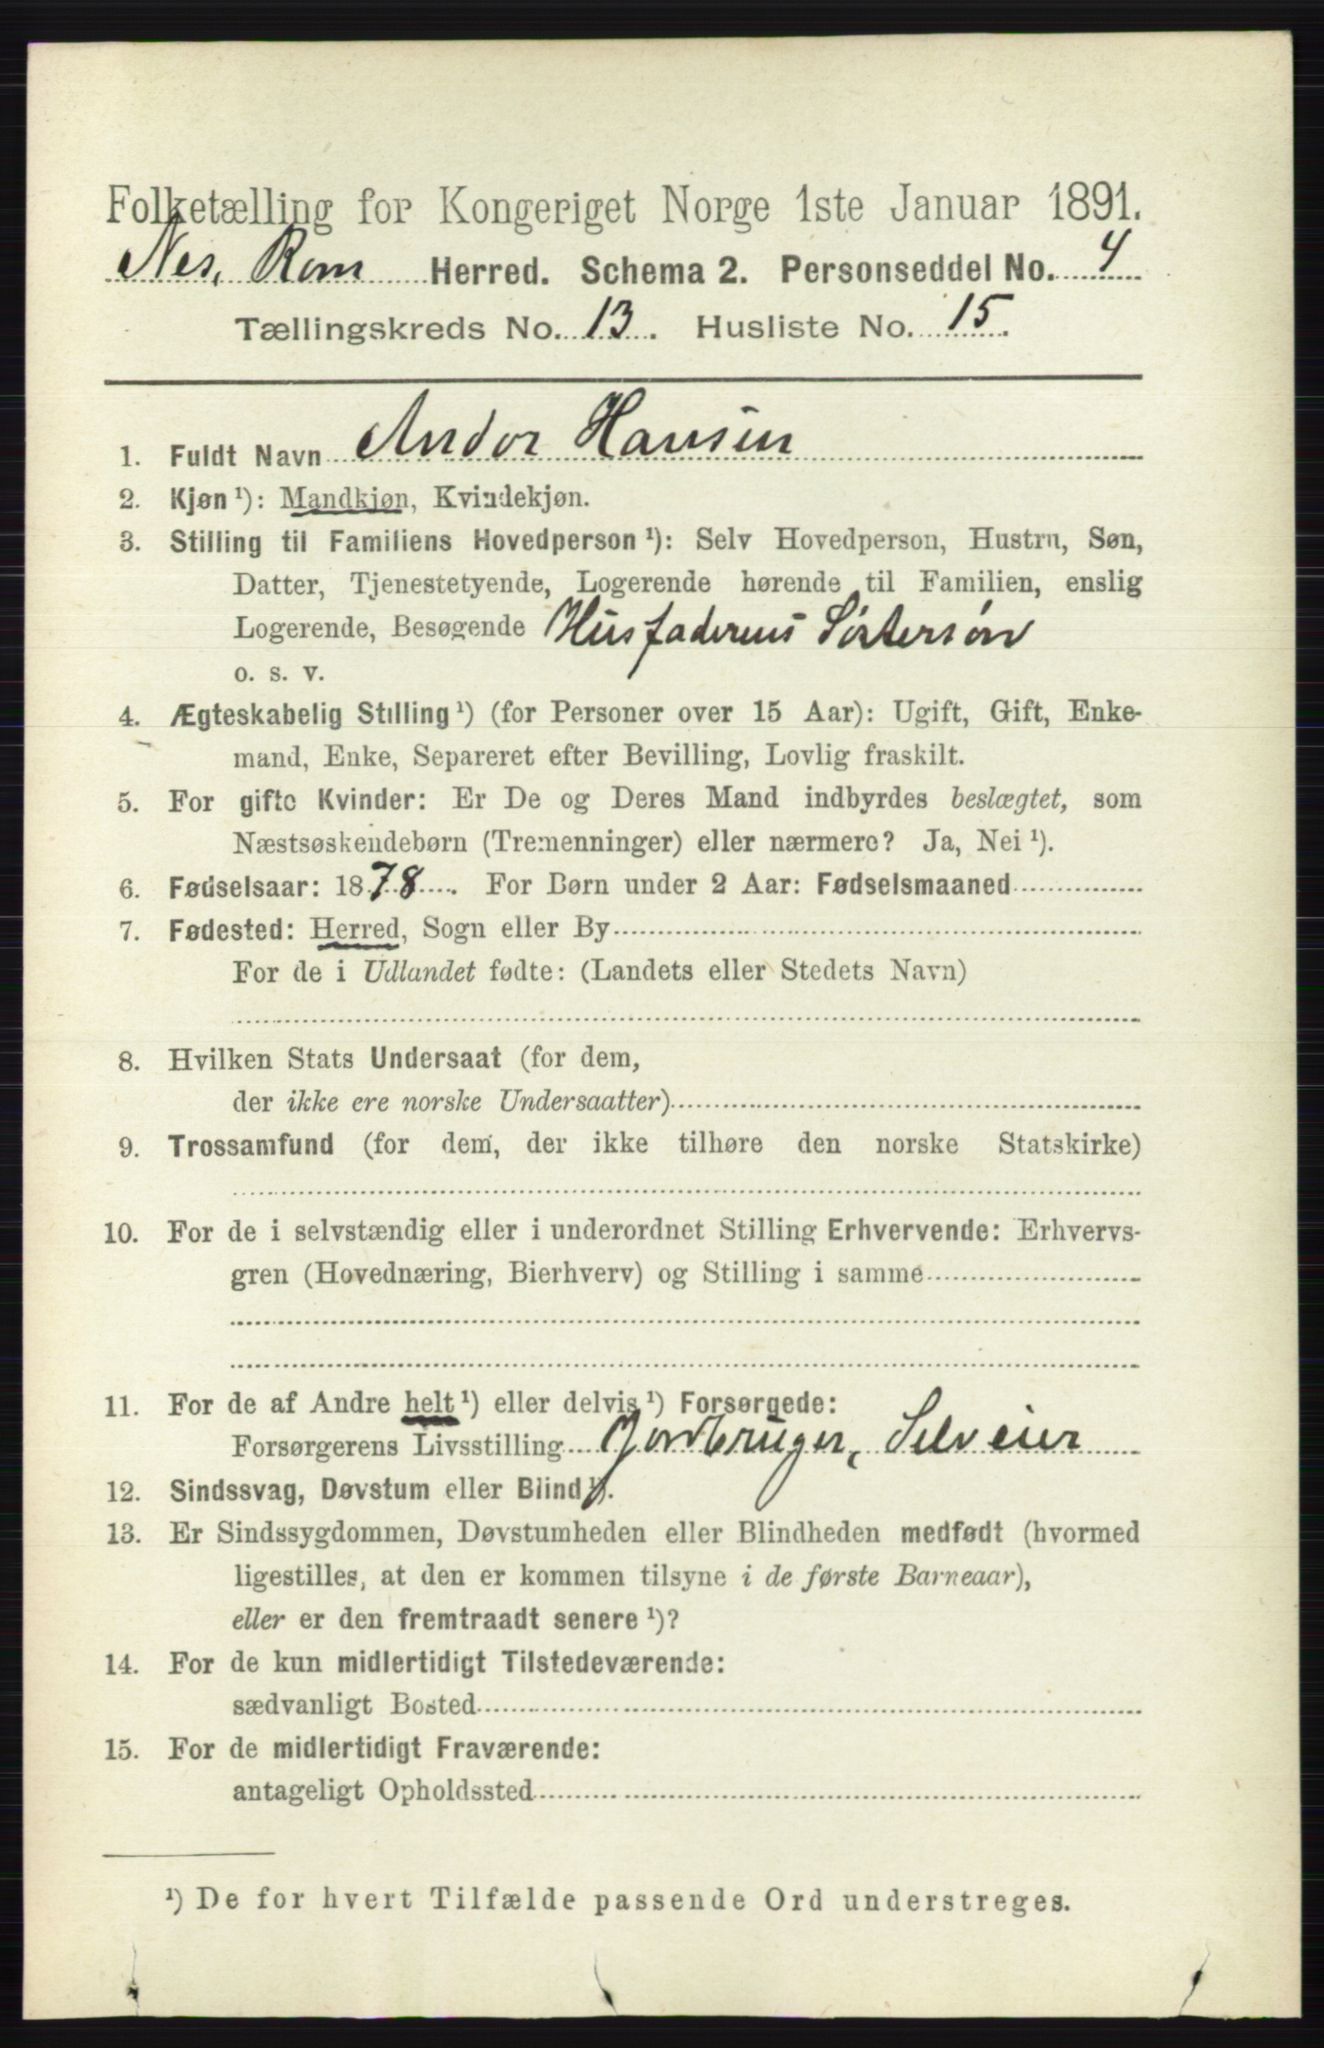 Folketælling for Kongeriget Norge 1ste Januar 1891.
Nes, Rom Herred. Schema 2. Personseddel No. 4
Tællingskreds No. 13. Husliste No. 15.
1. Fuldt Navn Andor Hansen
2. Kjøn ¹): Mandkjøn, Kvindekjøn.
3. Stilling til Familiens Hovedperson ¹): Selv Hovedperson, Hustru, Søn,
Datter, Tjenestetyende, Logerende hørende til Familien, enslig
Logerende, Besøgende Husfaderens Søstersøn
o. s. v.
4. Ægteskabelig Stilling ¹) (for Personer over 15 Aar): Ugift, Gift, Enke-
mand, Enke, Separeret efter Bevilling, Lovlig fraskilt.
5. For gifte Kvinder: Er De og Deres Mand indbyrdes beslægtet, som
Næstsøskendebørn (Tremenninger) eller nærmere? Ja, Nei ¹).
6. Fødselsaar: 1878. For Børn under 2 Aar: Fødselsmaaned
7. Fødested: Herred, Sogn eller By
For de i Udlandet fødte: (Landets eller Stedets Navn)
8. Hvilken Stats Undersaat (for dem,
der ikke ere norske Undersaatter)
9. Trossamfund (for dem, der ikke tilhøre den norske Statskirke)
10. For de i selvstændig eller i underordnet Stilling Erhvervende: Erhvervs-
gren (Hovednæring, Bierhverv) og Stilling i samme
11. For de af Andre helt ¹) eller delvis ¹) Forsørgede:
Forsørgerens Livsstilling Jordbruger, Selveier
12. Sindssvag, Døvstum eller Blind ¹).
13. Er Sindssygdommen, Døvstumheden eller Blindheden medfødt (hvormed
ligestilles, at den er kommen tilsyne i de første Barneaar),
eller er den fremtraadt senere ¹)?
14. For de kun midlertidigt Tilstedeværende:
sædvanligt Bosted
15. For de midlertidigt Fraværende:
antageligt Opholdssted
¹) De for hvert Tilfælde passende Ord understreges.